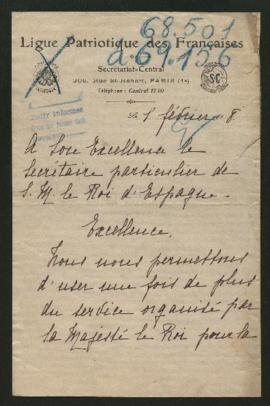 68.501
à 69.156
Ligue Patriotique des Françaises
Secrétariat-Central
Rue St-Honoré, PARIS (1er)
Téléphone: Central
SC
le 5 février 8
A Son Excellence le
Secrétaire particulier de
S. M. le Roi d'Espagne.
Excellence,
Nous nous permettons
d'user une fois de plus
du service organisé par
Sa Majesté le Roi pour la